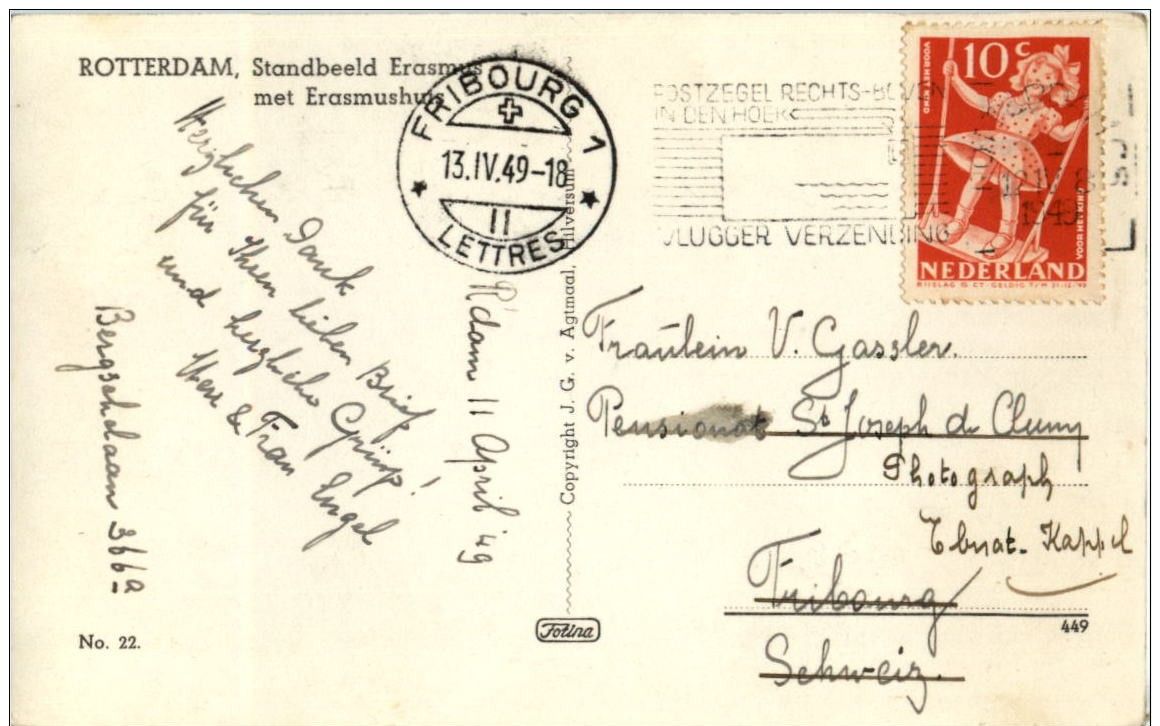 ROTTERDAM, Standbeeld Erasmus
met Erasmushuis
Herzlichen Dank
für Ihren lieben Brief
und herzliche Grüsse!
Herr & Frau Engel
Bergschelaan 366a
R'dam 11 April '49
No. 22.
FRIBOURG 1
13.IV.49-18
II
LETTRES
Copyright J. G. v. Agtmaal, Hilversum
Fotina
POSTZEGEL RECHTS-BOVEN
IN DEN HOEK
VLUGGER VERZENDING
1949
10 c
VOOR HET KIND
VOOR HET KIND
NEDERLAND
BIJSLAG 15 CT - GELDIG T/M 31-12-'49
Fräulein V. Gassler.
Pensionat St Joseph de Cluny
Photograph
Ebnat-Kappel
Fribourg
Schweiz.
449